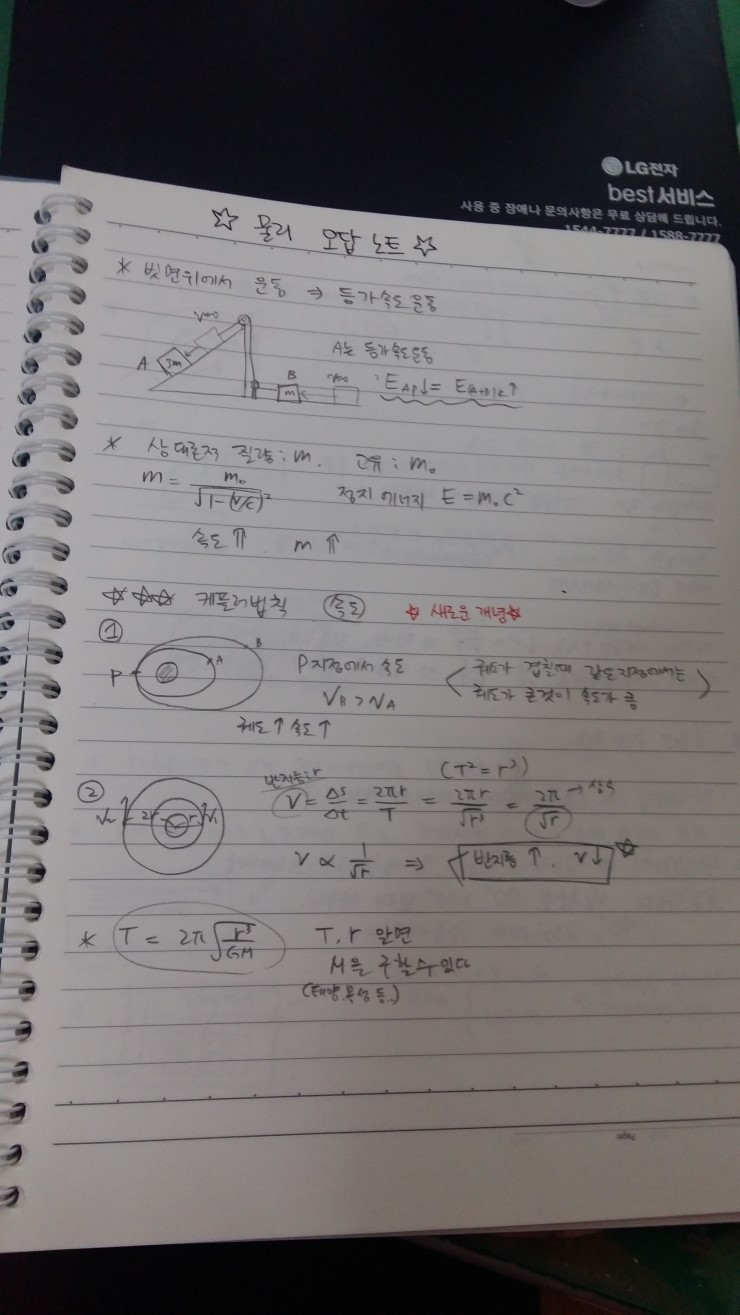 LG전자
best 서비스
사용 중 장애나 문의사항은 무료 상담해 드립니다.
1544-7777 / 1588-7777
☆ 물리 오답노트 ☆
* 빗면위에서 운동 ⇒ 등가속도운동
V=0
A 3m
B m V=0
A는 등가속도운동
E_AP↓ = E_(A+B)K↑
* 상대론적 질량 : m. 고유 : m₀
m = m₀ / √1-(v/c)²
정지 에너지 E = m₀c²
속도 ⇑ m ⇑
☆☆☆ 케플러법칙 속도 ☆ 새로운 개념☆
①
P A B
P지점에서 속도
V_B > V_A
< 궤도가 겹칠때 같은지점에서는
궤도가 큰것이 속도가 큼 >
궤도↑ 속도↑
②
V₂ 2r r V₁
(T² = r³)
V = Δs/Δt = 2πr/T = 2πr/√r³ = 2π/√r → 상수
V ∝ 1/√r ⇒ 반지름↑. v↓ ☆
* T = 2π√r³/GM
T, r 알면
M을 구할수있다
(태양,목성 등.)